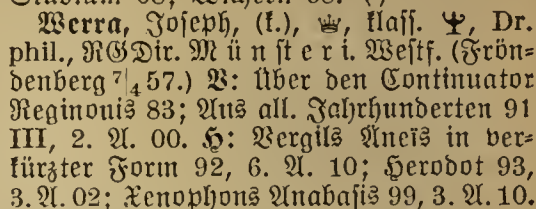 Werra, Joseph, (k.), ♕, klass. Dr.
phil., RGDir. Münster i. Westf. (Frön-
denberg 7|4 57.) V: Über den Continuator
Reginonis 83; Aus all. Jahrhunderten 91
III, 2. A. 00. H: Vergils Äneïs in ver-
kürzter Form 92, 6. A. 10; Herodot 93,
3. A. 02; Xenophons Anabasis 99, 3. A. 10.